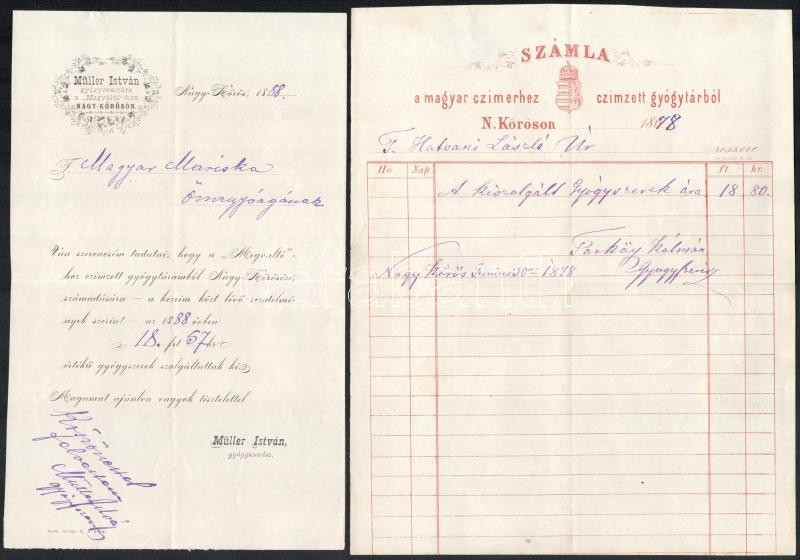 Müller István
gyógyszertára
a „Megváltó"-hoz
NAGY-KŐRÖSÖN.
Nagy-Kőrös, 1888.-
T. Magyar Mariska
Őnagyságának
Van szerencsém tudatni, hogy a „Megváltó"-
hoz czimzett gyógytáramból Nagy-Kőrösön,
számadására — a kezeim közt lévő rendelmé-
nyek szerint — az 1888 évben
18. frt 67 kr
értékű gyógyszerek szolgáltattak ki.
Magamat ajánlva vagyok tisztelettel
Müller István,
gyógyszerész.
Köszönettel
felvettem
Müller István
SZÁMLA
a magyar czimerhez czimzett gyógytárból
N. Kőrösön 1878
T. Hatvani László Úr
részére
Hó Nap ft. kr.
A kiszolgált Gyógyszerek ára 18 80.
Parkáy Kálmán
Nagy Kőrös Junius 30án 1878 Gyógyszerész